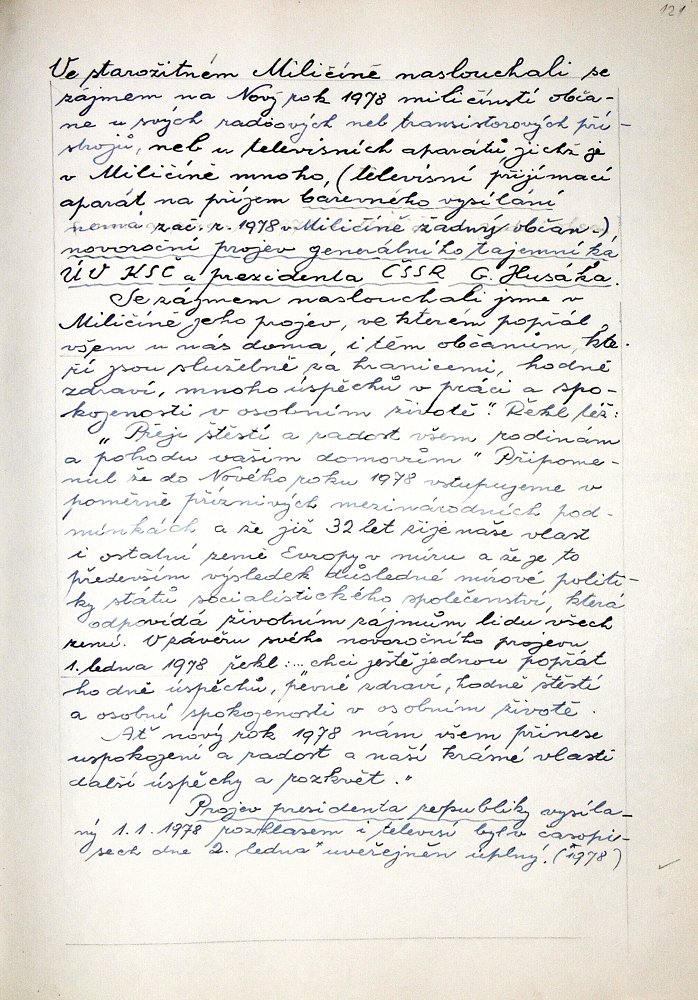 121
Ve starožitném Miličíně naslouchali se
zájmem na Nový rok 1978 miličínstí obča-
né u svých radiových neb transistorových pří-
strojů, neb u televisních aparátů, jichž je
v Miličíně mnoho, (televisní přijímací
aparát na příjem barevného vysílání
nemá zač. r. 1978 v Miličíně žádný občan.)
novoroční projev generálního tajemníka
ÚV KSČ a prezidenta ČSSR G. Husáka.
Se zájmem naslouchali jsme v
Miličíně jeho projev, ve kterém popřál
všem u nás doma, i těm občanům, kte-
ří jsou služebně za hranicemi, hodně
zdraví, mnoho úspěchů v práci a spo-
kojenosti v osobním životě." Řekl též:
„Přeji štěstí a radost všem rodinám
a pohodu vašim domovům" Připome-
nul že do Nového roku 1978 vstupujeme v
poměrně příznivých mezinárodních pod-
mínkách a že již 32 let žije naše vlast
i ostatní země Evropy v míru a že je to
především výsledek důsledné mírové politi-
ky států socialistického společenství, která
odpovídá životním zájmům lidu všech
zemí. V závěru svého novoročního projevu
1. ledna 1978 řekl: ... chci ještě jednou popřát
hodně úspěchů, pevné zdraví, hodně štěstí
a osobní spokojenosti v osobním životě.
Ať nový rok 1978 nám všem přinese
uspokojení a radost a naší krásné vlasti
další úspěchy a rozkvět."
Projev presidenta republiky vysíla-
ný 1.1.1978 rozhlasem i televisí byl v časopi-
sech dne 2. ledna uveřejněn úplný. (1978)